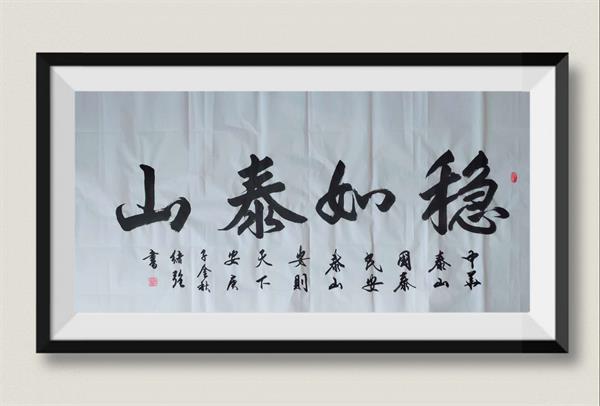 稳如泰山
中華
泰山
國泰
民安
泰山
安則
天下
安庚
子金秋
绪强
書